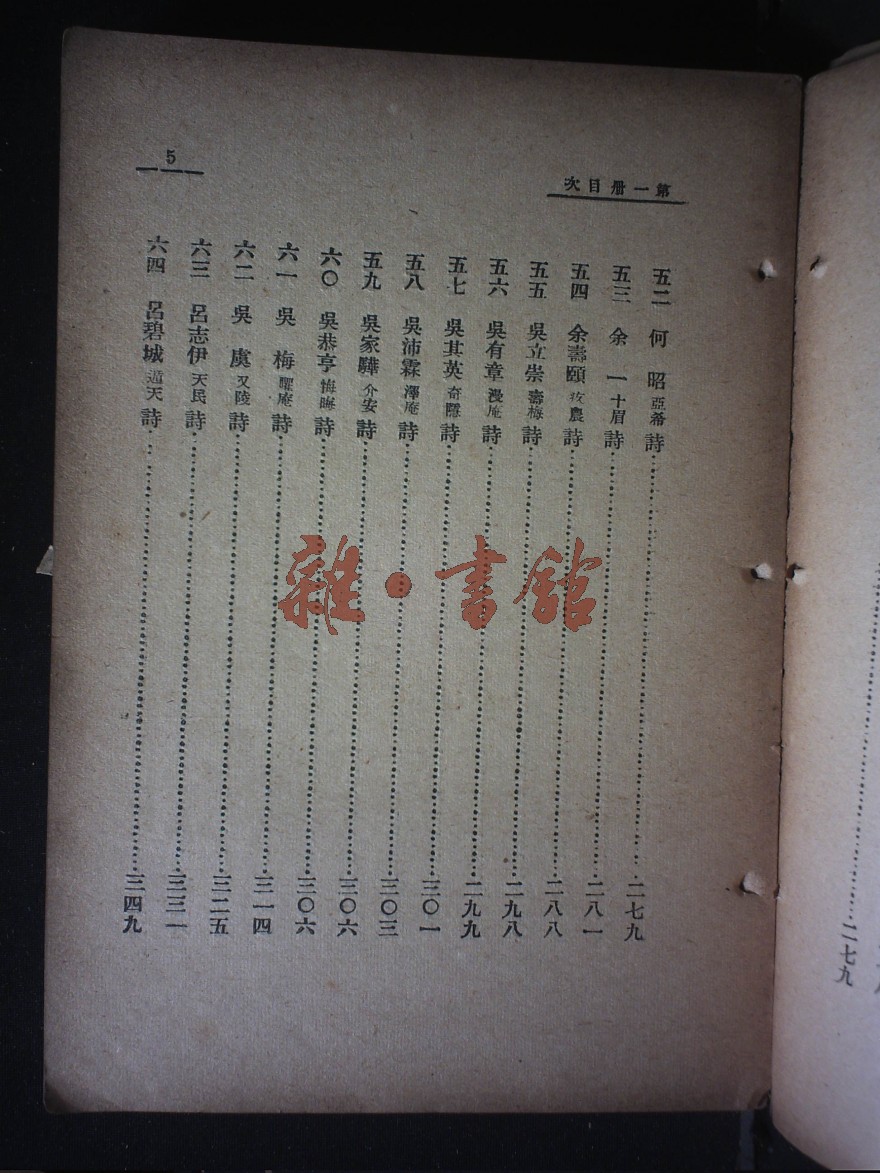 第一册目次
5
五二 何昭 亞希 詩 二七九
五三 余一 十眉 詩 二八一
五四 余壽頤 疚農 詩 二八八
五五 吳立崇 壽梅 詩 二九八
五六 吳有章 漫庵 詩 二九九
五七 吳其英 詩 三〇一
五八 吳沛霖 澤庵 詩 三〇三
五九 吳家驊 介安 詩 三〇六
六〇 吳恭亨 悔晦 詩 三〇六
六一 吳梅 臞庵 詩 三一四
六二 吳虞 又陵 詩 三二五
六三 呂志伊 天民 詩 三三一
六四 呂碧城 遁天 詩 三四九
雜·書館
二七九